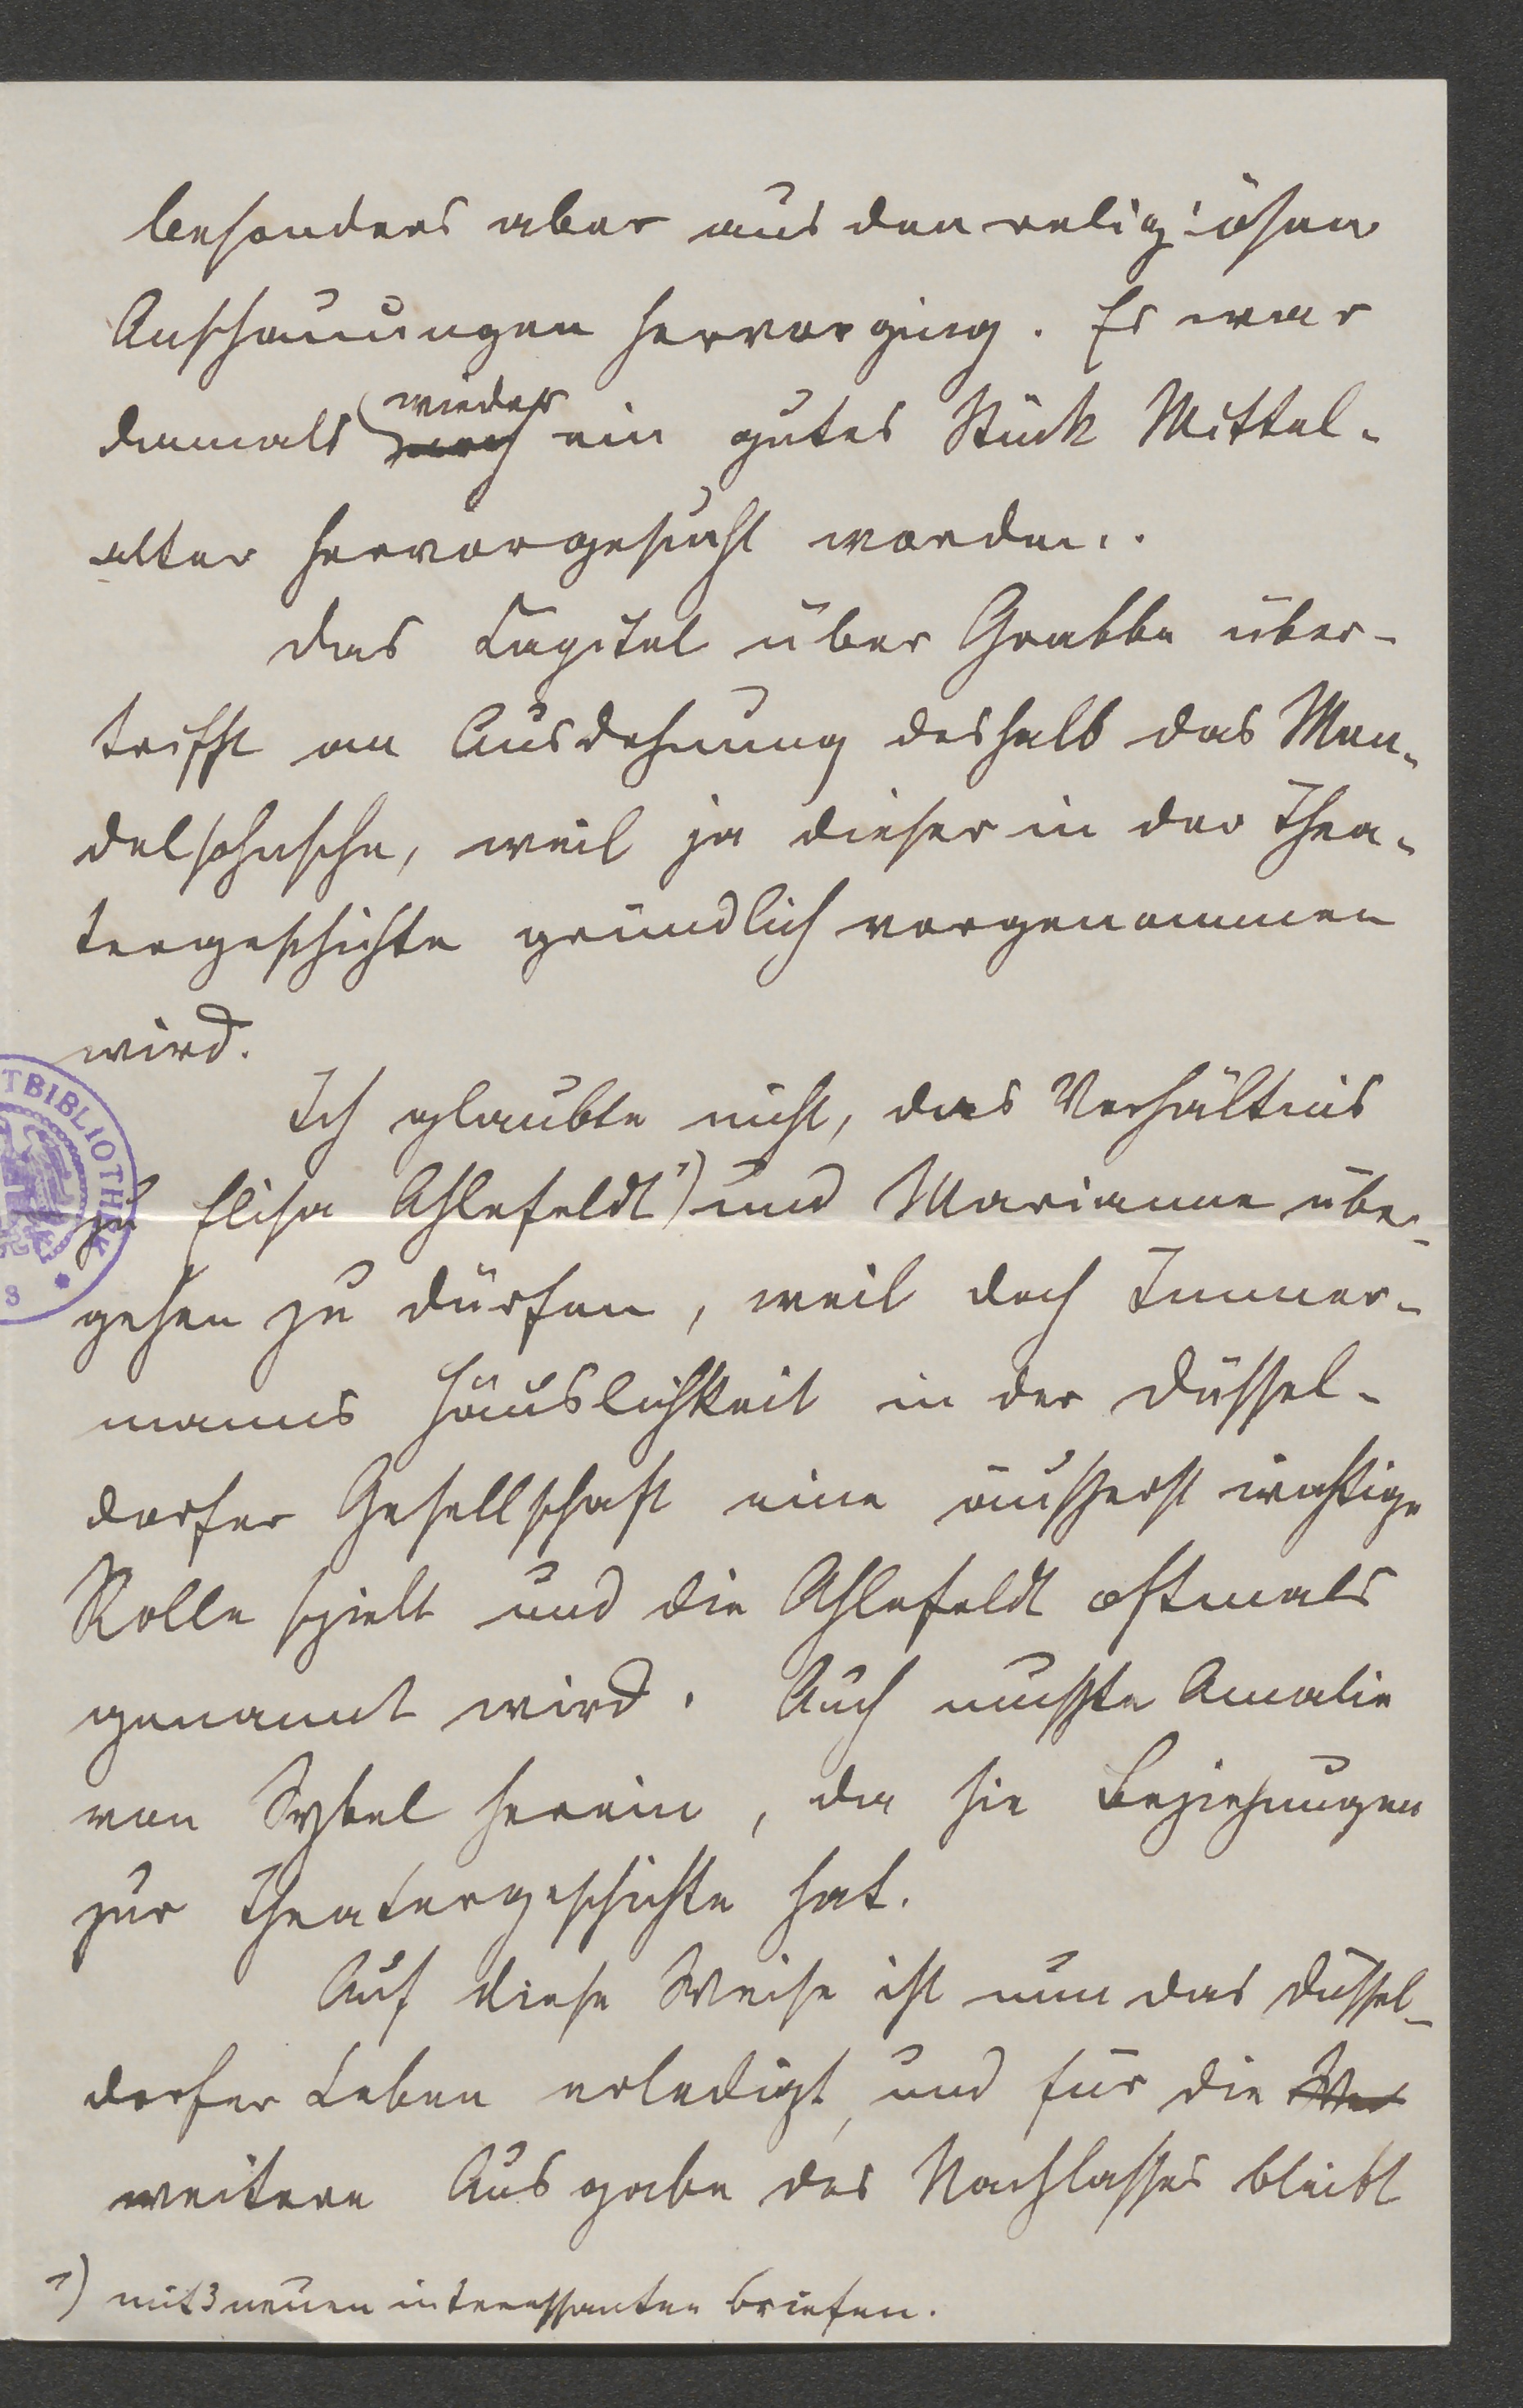 besonders aber aus den religiösen
Anschauungen hervorging. Es war
damals wieder noch ein gutes Stück Mittel-
alter hervorgesucht worden.
Das Kapitel über Grabbe über-
trifft an Ausdehnung deshalb das Men-
delsohnsche, weil ja dieser in der Thea-
tergeschichte gründlich vorgenommen
wird.
Ich glaubte nicht, das Verhältnis
zu Elisa Ahlefeldt 1) und Marianne über-
gehen zu dürfen, weil doch Immer-
manns Häuslichkeit in der Düssel-
dorfer Gesellschaft eine äußerst wichtige
Rolle spielt und die Ahlefeldt oftmals
genannt wird. Auch mußte Amalie
von Sybel herein, da sie Beziehungen
zur Theatergeschichte hat.
Auf diese Weise ist nun das Düssel-
dorfer Leben erledigt, und für die
weitere Ausgabe des Nachlasses bleibt
1) mit 3 neuen interessanten Briefen.
TBIBLIOTHEK